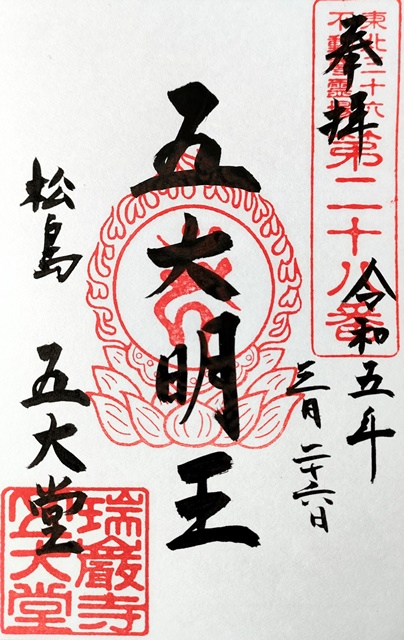 奉拝
東北三十六
不動尊霊場
第二十八番
令和五年
三月二十六日
五大明王
松島
五大堂
瑞巌寺
五大堂